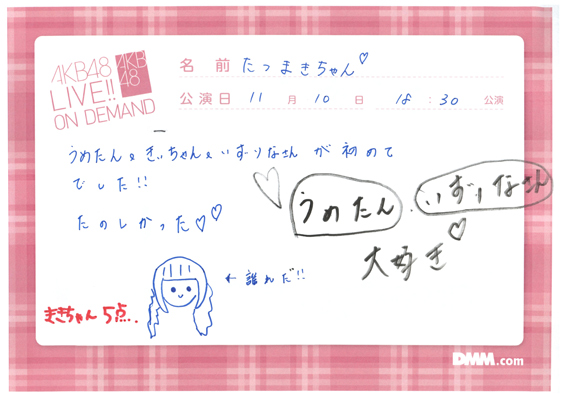 AKB48
LIVE!!
ON DEMAND
AKB
48
名前 たつまきちゃん♡
公演日 11月10日 18:30公演
うめたん&きぃちゃん&いずりなさんが初めて
でした!!
たのしかった♡♡
うめたん、いずりなさん
大好き
←誰んだ!!
まきちゃん5点.
DMM.com